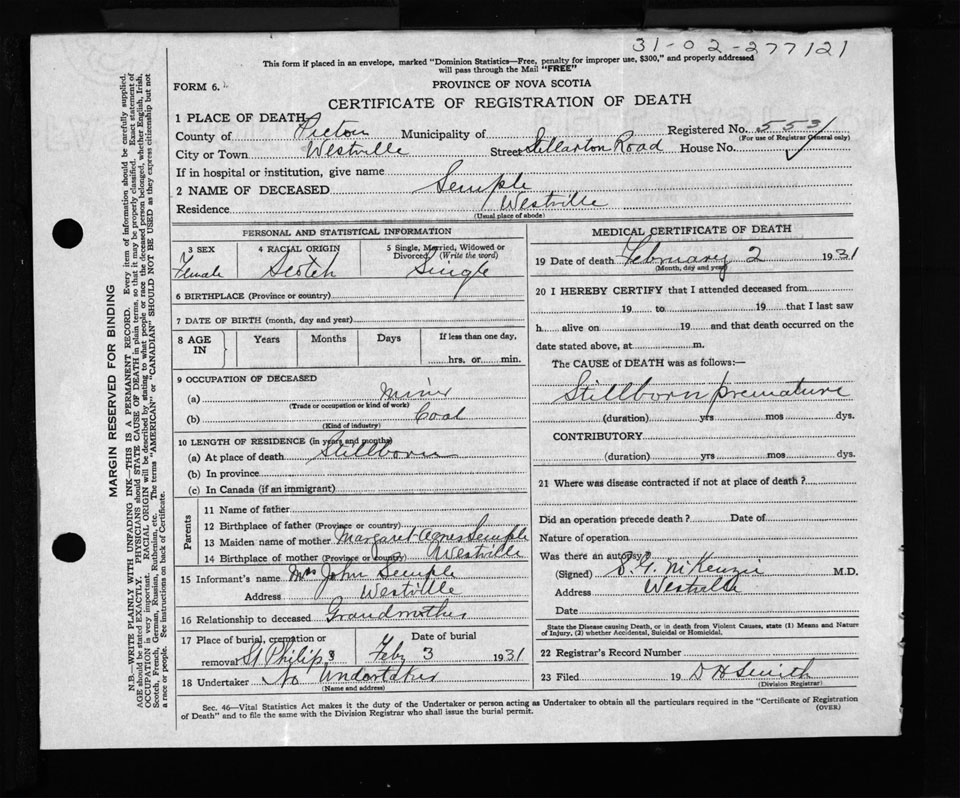 31-02-277121
This form if placed in an envelope, marked "Dominion Statistics—Free, penalty for improper use, $300," and properly addressed
will pass through the Mail "FREE"
FORM 6.
PROVINCE OF NOVA SCOTIA
CERTIFICATE OF REGISTRATION OF DEATH
1 PLACE OF DEATH
County of Pictou Municipality of Registered No. 553
(For use of Registrar General only)
City or Town Westville Street Stellarton Road House No.
If in hospital or institution, give name
2 NAME OF DECEASED Semple
Residence Westville
(Usual place of abode)
PERSONAL AND STATISTICAL INFORMATION
3 SEX 4 RACIAL ORIGIN 5 Single, Married, Widowed or
Divorced. (Write the word)
Female Scotch Single
6 BIRTHPLACE (Province or country)
7 DATE OF BIRTH (month, day and year)
8 AGE IN Years Months Days If less than one day,
hrs. or min.
9 OCCUPATION OF DECEASED
(a) Miner
(Trade or occupation or kind of work)
(b) Coal
(Kind of industry)
10 LENGTH OF RESIDENCE (in years and months)
(a) At place of death Stillborn
(b) In province
(c) In Canada (if an immigrant)
Parents
11 Name of father
12 Birthplace of father (Province or country)
13 Maiden name of mother Margaret Agnes Semple
14 Birthplace of mother (Province or country) Westville
15 Informant's name Mrs John Semple
Address Westville
16 Relationship to deceased Grandmother
17 Place of burial, cremation or Date of burial
removal St Philips Feby 3 1931
18 Undertaker No Undertaker
(Name and address)
MEDICAL CERTIFICATE OF DEATH
19 Date of death February 2 1931
(Month, day and year)
20 I HEREBY CERTIFY that I attended deceased from
19 to 19 that I last saw
h alive on 19 and that death occurred on the
date stated above, at m.
The CAUSE of DEATH was as follows:—
Stillborn premature
(duration) yrs mos dys.
CONTRIBUTORY
(duration) yrs mos dys.
21 Where was disease contracted if not at place of death?
Did an operation precede death? Date of
Nature of operation
Was there an autopsy?
(Signed) S. G. McKenzie M.D.
Address Westville
Date
State the Disease causing Death, or in death from Violent Causes, state (1) Means and Nature
of Injury, (2) whether Accidental, Suicidal or Homicidal.
22 Registrar's Record Number
23 Filed 19 D H Smith
(Division Registrar)
Sec. 46—Vital Statistics Act makes it the duty of the Undertaker or person acting as Undertaker to obtain all the particulars required in the "Certificate of Registration
of Death" and to file the same with the Division Registrar who shall issue the burial permit.
(OVER)
MARGIN RESERVED FOR BINDING
N.B.—WRITE PLAINLY WITH UNFADING INK—THIS IS A PERMANENT RECORD. Every item of information should be carefully supplied.
AGE should be stated EXACTLY. PHYSICIANS should STATE CAUSE OF DEATH in plain terms, so that it may be properly classified. Exact statement of
OCCUPATION is very important. RACIAL ORIGIN will be described by stating to what people or race the deceased person belonged, whether English, Irish,
Scotch, French, German, Russian, Ruthenian, etc. The terms "AMERICAN" or "CANADIAN" SHOULD NOT BE USED as they express citizenship but not
a race or people. See instructions on back of Certificate.